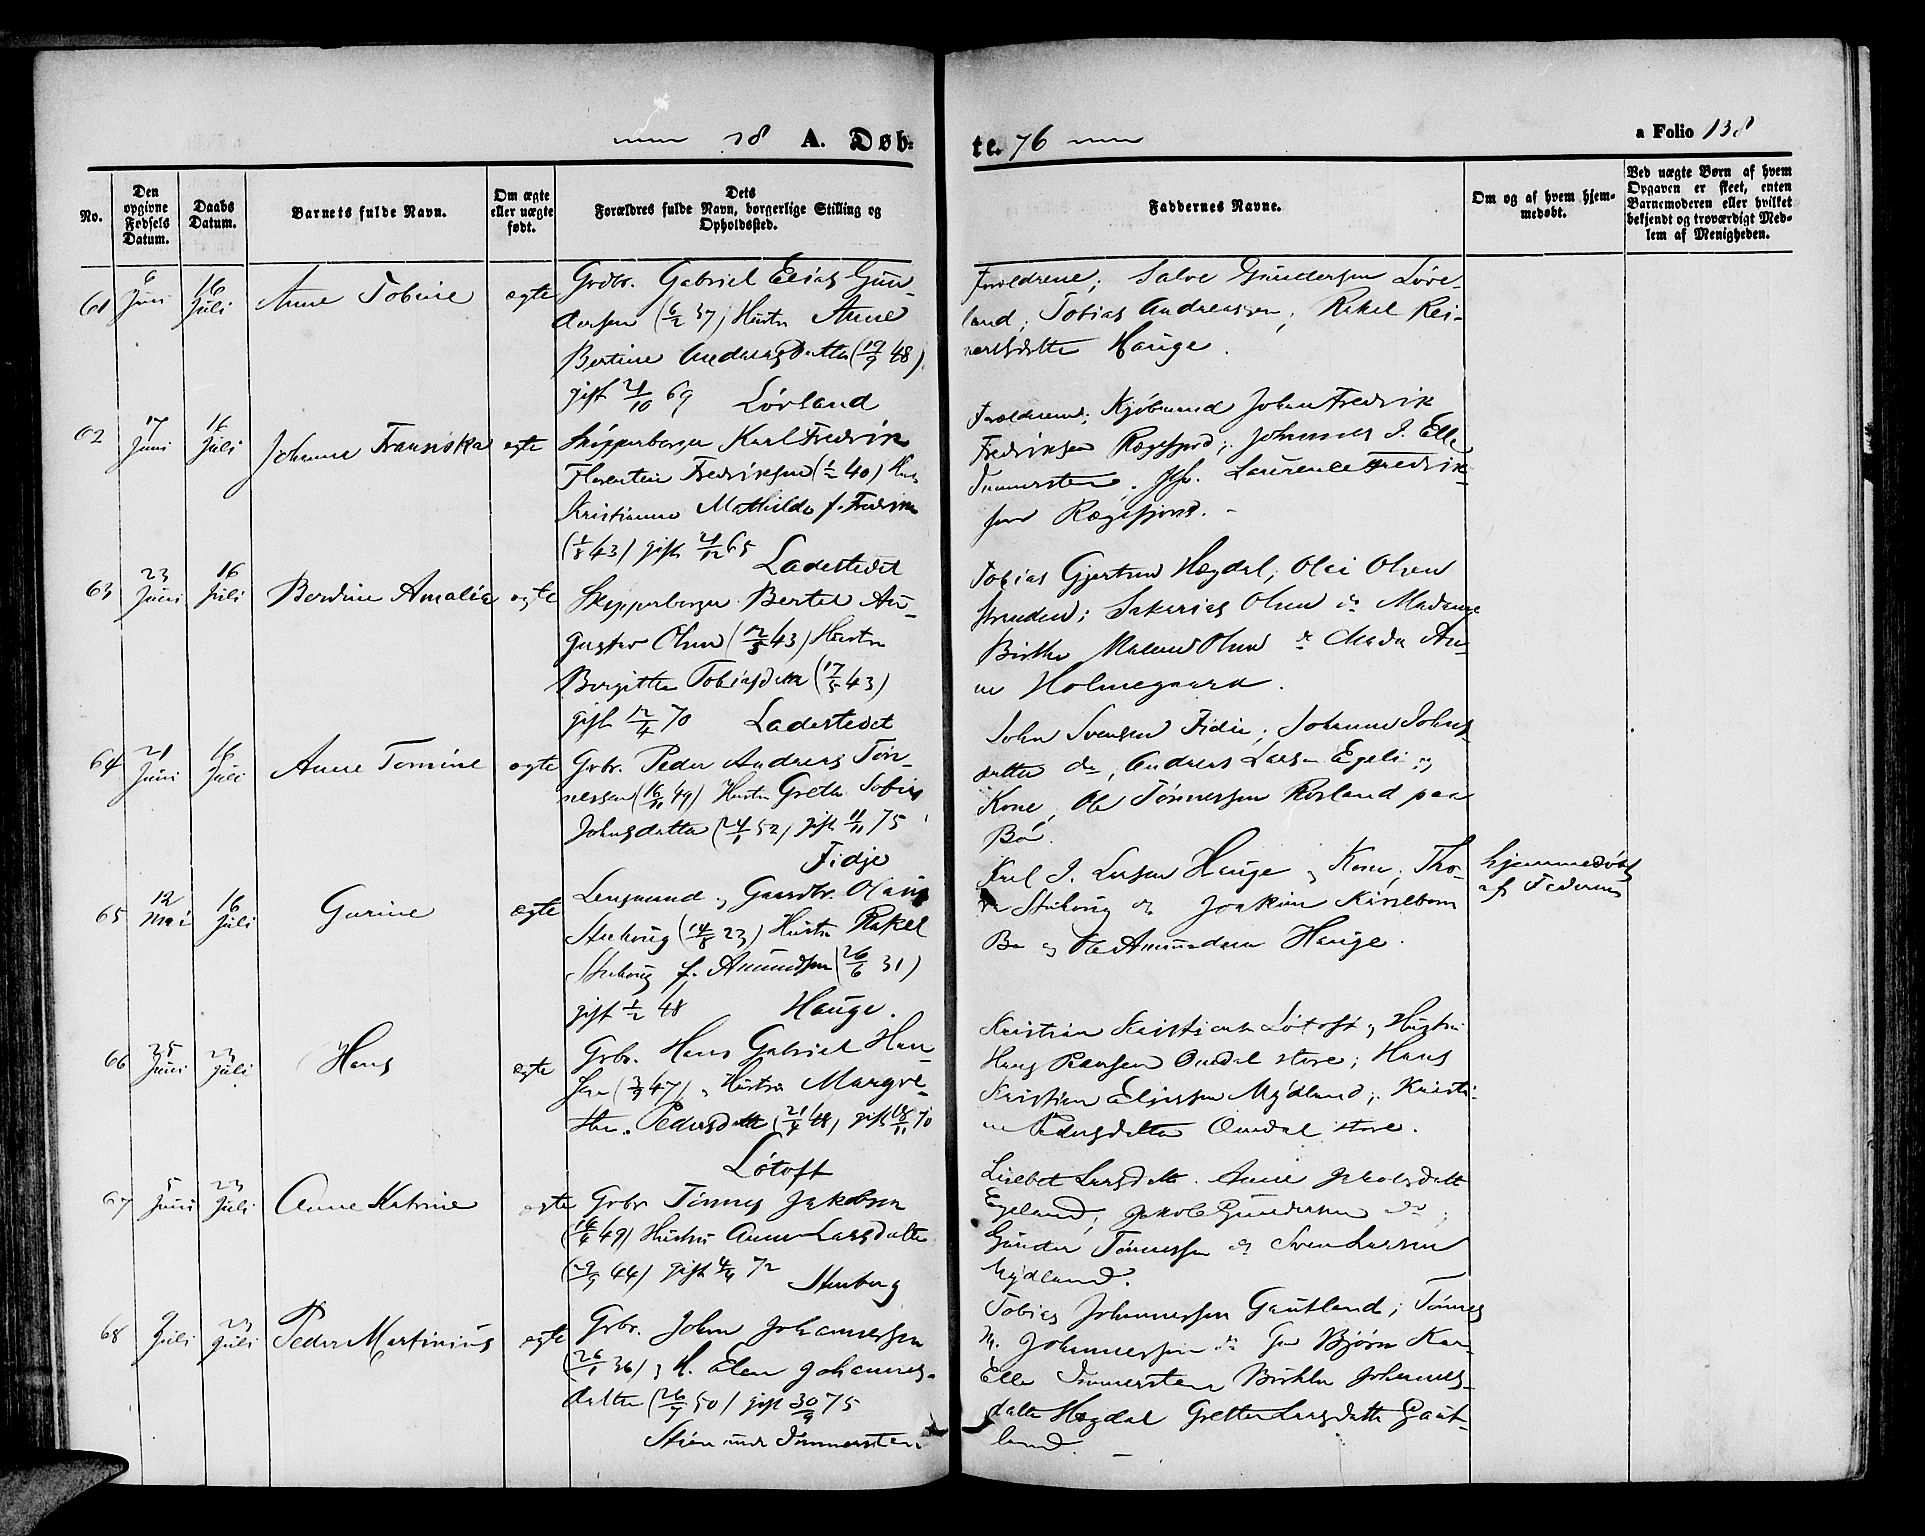 18 A. Døb=
te. 76
a Folio 138
No.
Den opgivne Fødsels Datum.
Daabs Datum.
Barnets fulde Navn.
Om ægte eller uægte født.
Dets Forældres fulde Navn, borgerlige Stilling og Opholdssted.
Faddernes Navne.
Om og af hvem hjemmedøbt.
Ved uægte Børn af hvem Opgaven er skeet, enten Barnemoderen eller hvilket bekjendt og troværdigt Medlem af Menigheden.
61 6 Juni 16 Juli Anne Tobine ægte Grdbr. Gabriel Elias Gun-
dersen (6/2 37) Hustru Anne
Bertine Andreasdatter (19/9 48)
gift 21/10 69 Løvland
Forældrene; Salve Gundersen Løve-
land; Tobias Andreassen; Rakel Rei-
nertsdatter Hauge.
62 17 Juni 16 Juli Johanne Fransiska ægte Skipperborger Karl Fredrik
Florentin Fredriksen (1/2 40) Hus
Kristianne Mathilde f. Fredriks
(1/8 43) gift 21/12 65 Ladestedet
Forældrene; Kjøbmand Johan Fredrik
Fredriksen Rægefjord; Johannes J. Elle
Immersten. Laurense Fredrik-
sen Rægefjord.
63 23 Juni 16 Juli Berdine Amalie ægte Skipperborger Bertel Au-
gustav Olsen (12/5 43) Hustru
Bergitte Tobiasdatter (17/5 43)
gift 12/4 70 Ladestedet
Tobias Gjertsen Hægdal; Olei Olsen
Stranden; Sakarias Olsen do Madame
Birthe Malene Olsen do Mada An-
ne Holmegaard.
64 21 Juni 16 Juli Anne Tomine ægte Grbr. Peder Andreas Tøn-
nessen (16/11 49) Hustru Grethe Sofie
Johnsdatter (24/1 52) gift 11/11 75
Fidje
John Svensen Fidje; Johanne Johns-
datter do, Andreas Larsen Egeli og
Kone, Ole Tønnessen Rosland paa
Bø.
65 12 Mai 16 Juli Gurine ægte Lensmand og Gaardbr. Olaus
Stuberg (14/8 23) Hustru Rakel
Stuberg f. Amundsen (26/6 31)
gift 1/2 48 Hauge.
Karl J. Larsen Hauge og Kone, Tho-
Joakim
Bø og Ole Amundsen Hauge.
hjemmedøbt
af Faderen
66 25 Juni 23 Juli Hans ægte Grbr. Hans Gabriel Han-
sen (3/9 47) og Hustru Margre-
the Pedersdatter (21/4 48) gift 18/11 70
Løtoft
Kristian Kristiansen Løtoft og Hustru
Hans Omdal store; Hans
Kristian Eliassen Mydland; Kristi-
ne Pedersdatter Omdal store.
67 5 Juni 23 Juli Anne Katrine ægte Grbr Tønnes Jakobsen
(16/4 49) Hustru Anne Larsdatter
(29/9 44) gift 4/4 72 Stuberg
Lisebet Larsdatt. Anne Jakobsdatt
Egeland; Jakob Gundersen do;
Gunder Tønnessen og Sven Larsen
Mydland.
68 9 Juli 23 Juli Peder Martinius ægte Grbr. John Johannessen
(26/1 36) og H. Elen Johannes-
datter (26/9 50) gift 30/9 75
Stien indr Immersten
Tobias Johannessen Gautland; Tønnes
M. Johannessen do Gm Bjørn Kar-
Elle Immersten Birthe Johannes-
datter Hægdal Grethe Larsdatte Gaut-
land.